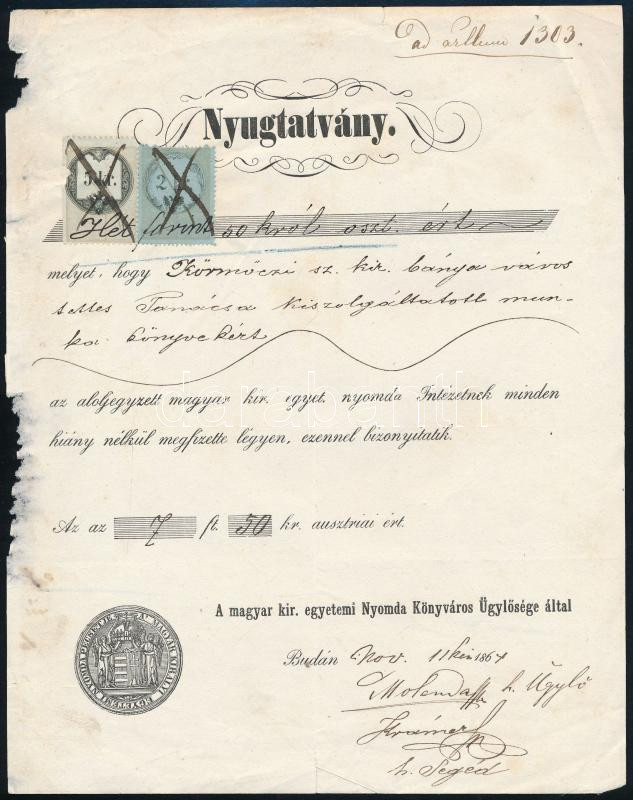 ad 1303.
Nyugtatvány.
5 kr.
2
Hét forint 50 król oszt. ért.
melyet, hogy Körmöczi sz. kir. bánya város
tettes Tanácsa kiszolgáltatott mun-
ka könyvekért
az aloljegyzett magyar kir. egyet. nyomda Intézetnek minden
hiány nélkül megfizette légyen, ezennel bizonyitatik.
darabanth
Az az 7 ft. 50 kr. ausztriai ért.
A magyar kir. egyetemi Nyomda Könyváros Ügylősége által
Budán Nov. 11kén 1864
Molenda h. Ügylő
Krámer
h. Segéd
A' MAGYAR KIRÁLYI EGYETEMI NYOMDA